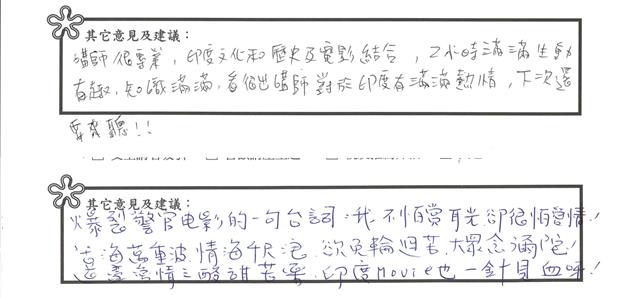 其它意見及建議：
講師很專業，印度文化和歷史及電影結合，2小時滿滿生動
有趣，知識滿滿，看得出講師對於印度有滿滿熱情，下次還
要來聽!!
其它意見及建議：
爆裂警官电影的一句台詞：我不怕賞耳光卻很怕當情!
苦海萬重波,情海千尺浪,欲免輪迴苦,大眾念彌陀!
愛情三酸甜苦,印度Movie也一針見血呀!